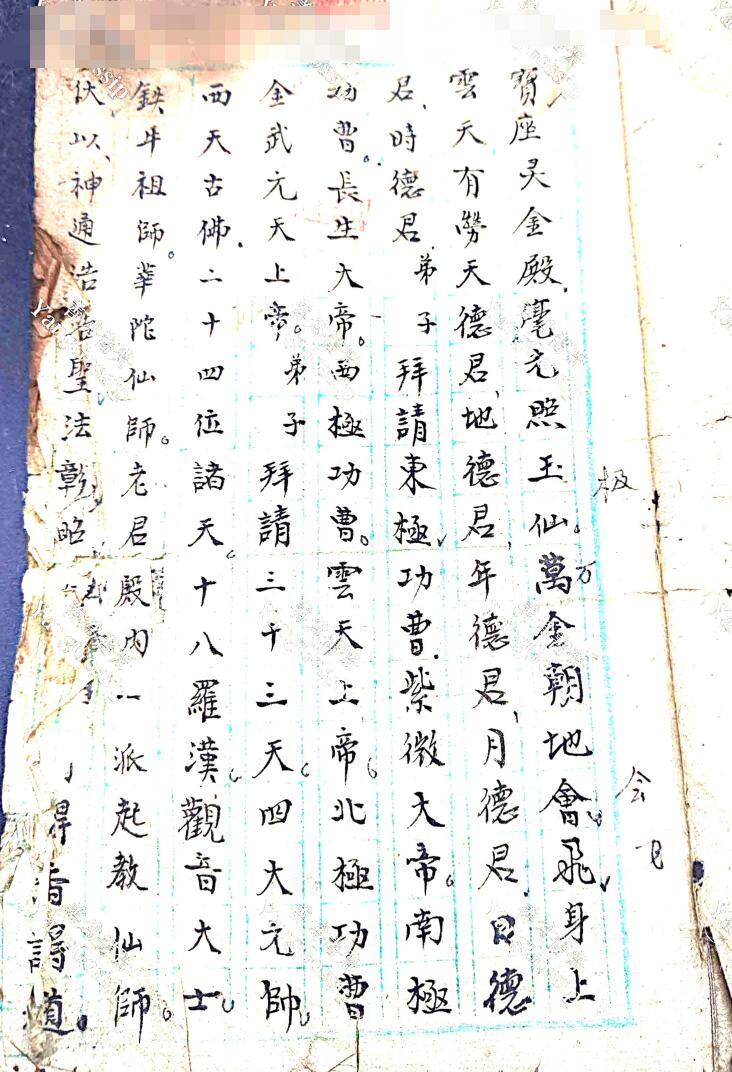 寶座灵金殿、毫光照玉仙。萬金朝地會、飛身上
万
雲天有勞天德君、地德君、年德君、月德君、日德
君、時德君、弟子拜請東極、功曹、紫微大帝。南極
功曹。長生大帝。西極功曹。雲天上帝。北極功曹
金武元天上帝。弟子拜請三十三天。四大元帥。
西天古佛、二十四位諸天。十八羅漢。觀音大士。
鉄牛祖師。華陀仙師。老君殿内一派起教仙師。
伏以、神通浩浩聖法彰昭
得道。
极
会飞